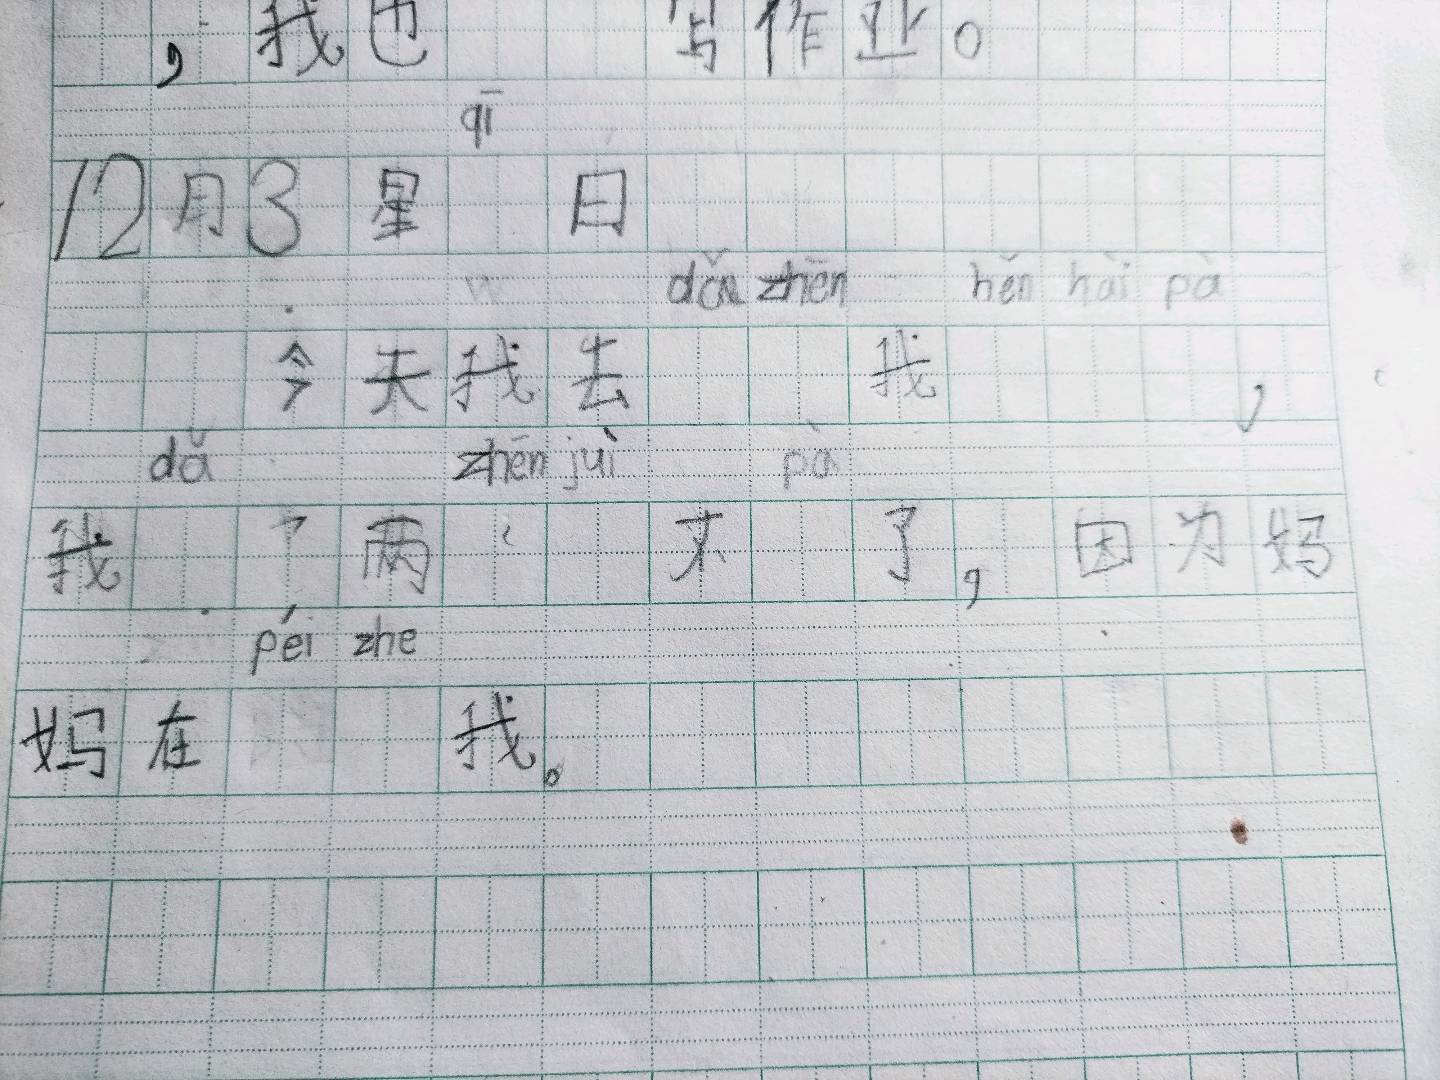 ，我也 写作业。
qī
12月3 星 日
dǎ zhēn hěn hài pà
今天我去 我 ，
dǎ zhēn juì pà
我 了两 不 了，因为妈
péi zhe
妈在 我。